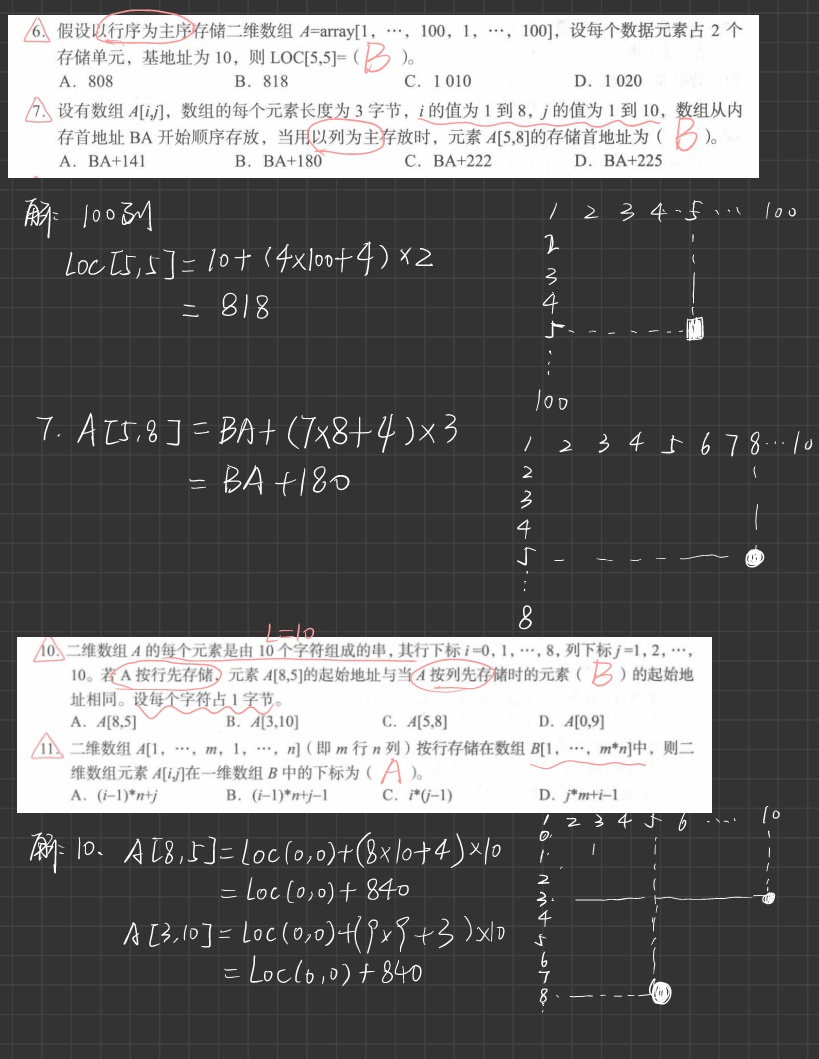 6. 假设以行序为主序存储二维数组 A=array[1，…，100，1，…，100]，设每个数据元素占 2 个
存储单元，基地址为 10，则 LOC[5,5]=（ B ）。
A．808 B．818 C．1 010 D．1 020
7. 设有数组 A[i,j]，数组的每个元素长度为 3 字节，i 的值为 1 到 8，j 的值为 1 到 10，数组从内
存首地址 BA 开始顺序存放，当用以列为主存放时，元素 A[5,8]的存储首地址为（ B ）。
A．BA+141 B．BA+180 C．BA+222 D．BA+225
解: 100列
Loc[5,5]=10+(4×100+4)×2
= 818
1 2 3 4 ·5 … 100
2
3
4
5
⋮
100
7. A[5,8]=BA+(7×8+4)×3
= BA+180
1 2 3 4 5 6 7 8…10
2
3
4
5
⋮
8
L=10
10. 二维数组 A 的每个元素是由 10 个字符组成的串，其行下标 i=0，1，…，8，列下标 j=1，2，…，
10。若 A 按行先存储，元素 A[8,5]的起始地址与当 A 按列先存储时的元素（ B ）的起始地
址相同。设每个字符占 1 字节。
A．A[8,5] B．A[3,10] C．A[5,8] D．A[0,9]
11. 二维数组 A[1，…，m，1，…，n]（即 m 行 n 列）按行存储在数组 B[1，…，m*n]中，则二
维数组元素 A[i,j]在一维数组 B 中的下标为（ A ）。
A．(i−1)*n+j B．(i−1)*n+j−1 C．i*(j−1) D．j*m+i−1
解: 10、A[8,5]=Loc(0,0)+(8×10+4)×10
= Loc(0,0)+840
A[3,10]=Loc(0,0)+(9×9+3)×10
= Loc(0,0)+840
1 2 3 4 5 6 …. 10
0
1
2
3
4
5
6
7
8